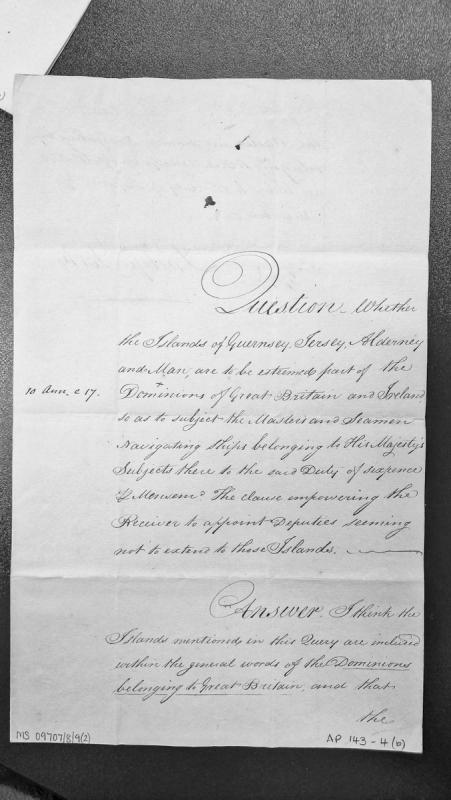 Question. Whether
the Islands of Guernsey, Jersey, Alderney
and Man, are to be esteemed part of the
10 Ann. c 17.
Dominions of Great Britain and Ireland
so as to subject the Masters and Seamen
Navigating ships belonging to His Majesty's
Subjects there to the said Duty of sixpence
⅌ Mensem. The clause empowering the
Receiver to appoint Deputies seeming
not to extend to those Islands.
Answer. I think the
Islands mentioned in this Query are included
within the general words of the Dominions
belonging to Great Britain, and that
the
MS 09707/8/9(2)
AP 143-4(b)